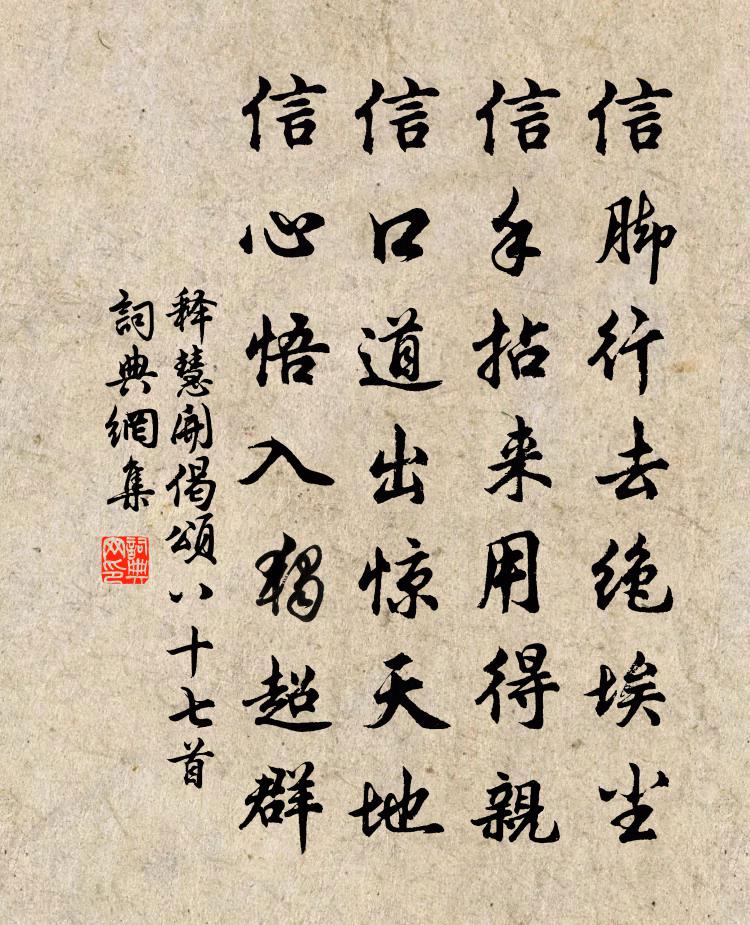 信脚行去绝埃尘
信手拈来用得親
信口道出惊天地
信心悟入獨超群
释慧開偈頌八十七首
詞典網集
詞典網印